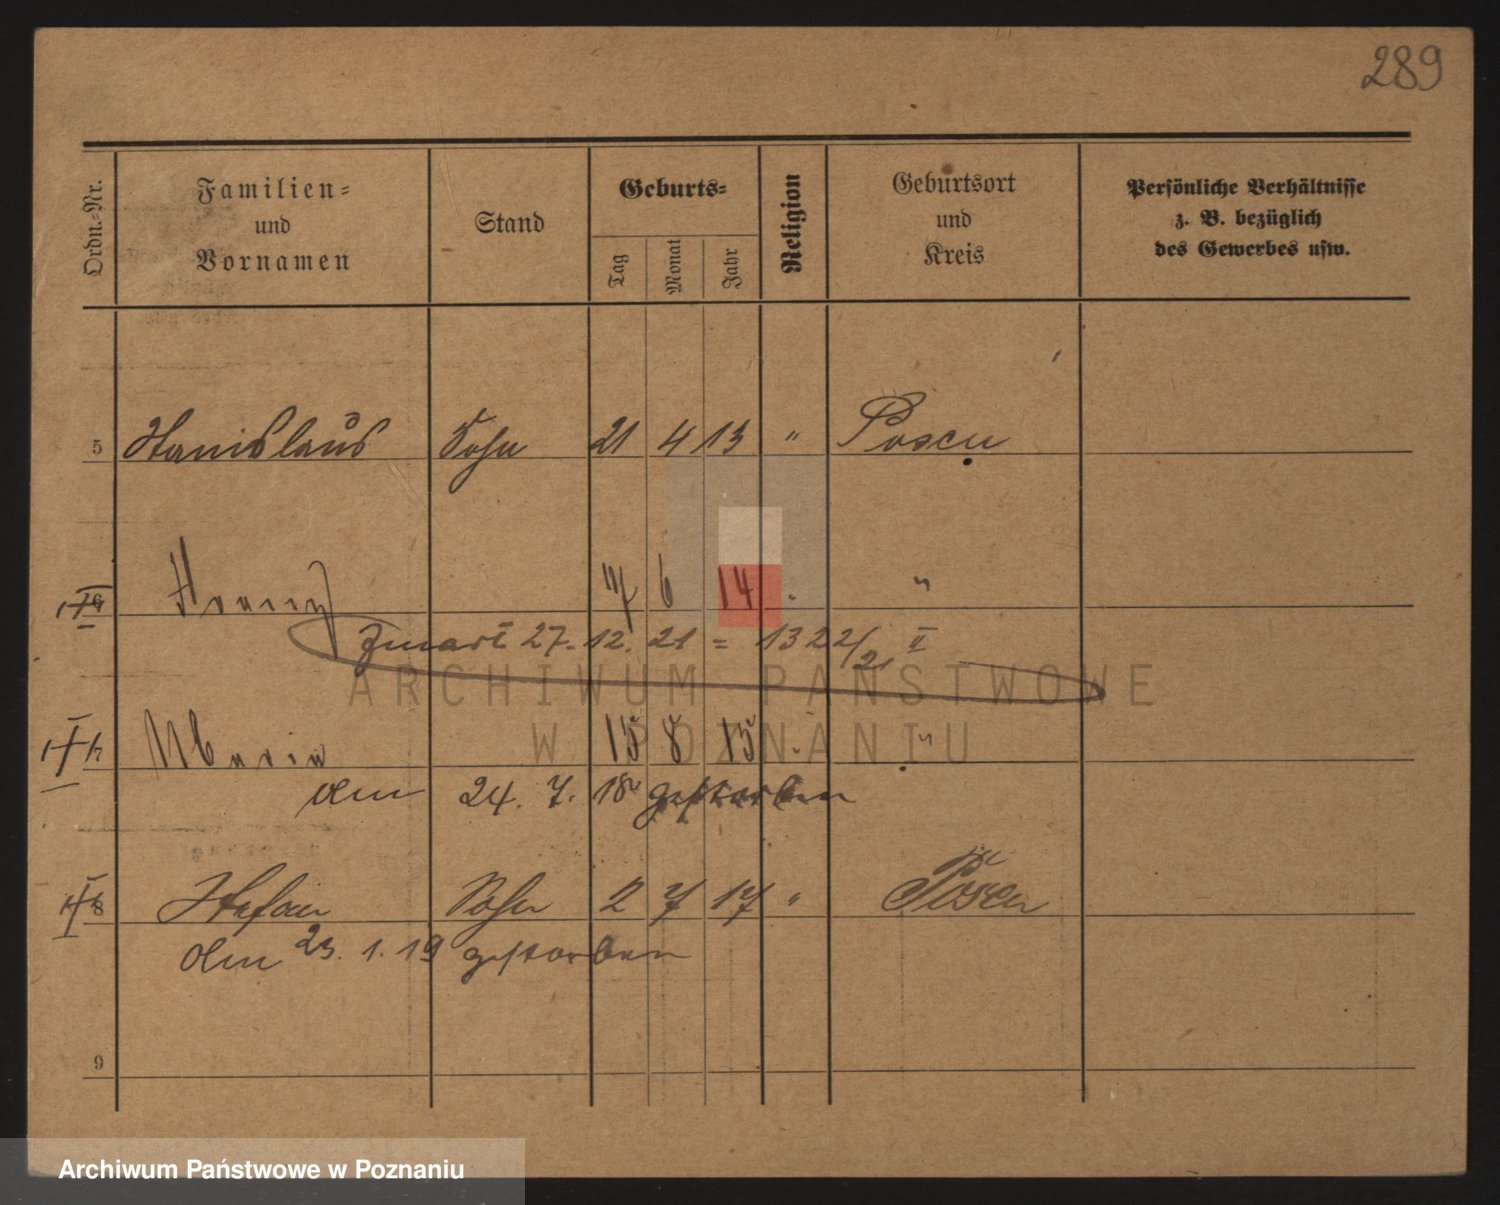 289
Ordn.-Nr.
Familien-
und
Vornamen
Stand
Geburts-
Tag
Monat
Jahr
Religion
Geburtsort
und
Kreis
Persönliche Verhältnisse
z. B. bezüglich
des Gewerbes usw.
5 Stanislaus Sohn 21 4 13 " Posen
6 14 "
Zmarł 27. 12. 21 = 1322/21 II
Maria 15 8 15 "
Am 24. 7. 18 gestorben
8 Stefan Sohn 2 7 17 " Posen
Am 23. 1. 19 gestorben
9
ARCHIWUM PAŃSTWOWE
W POZNANIU
Archiwum Państwowe w Poznaniu